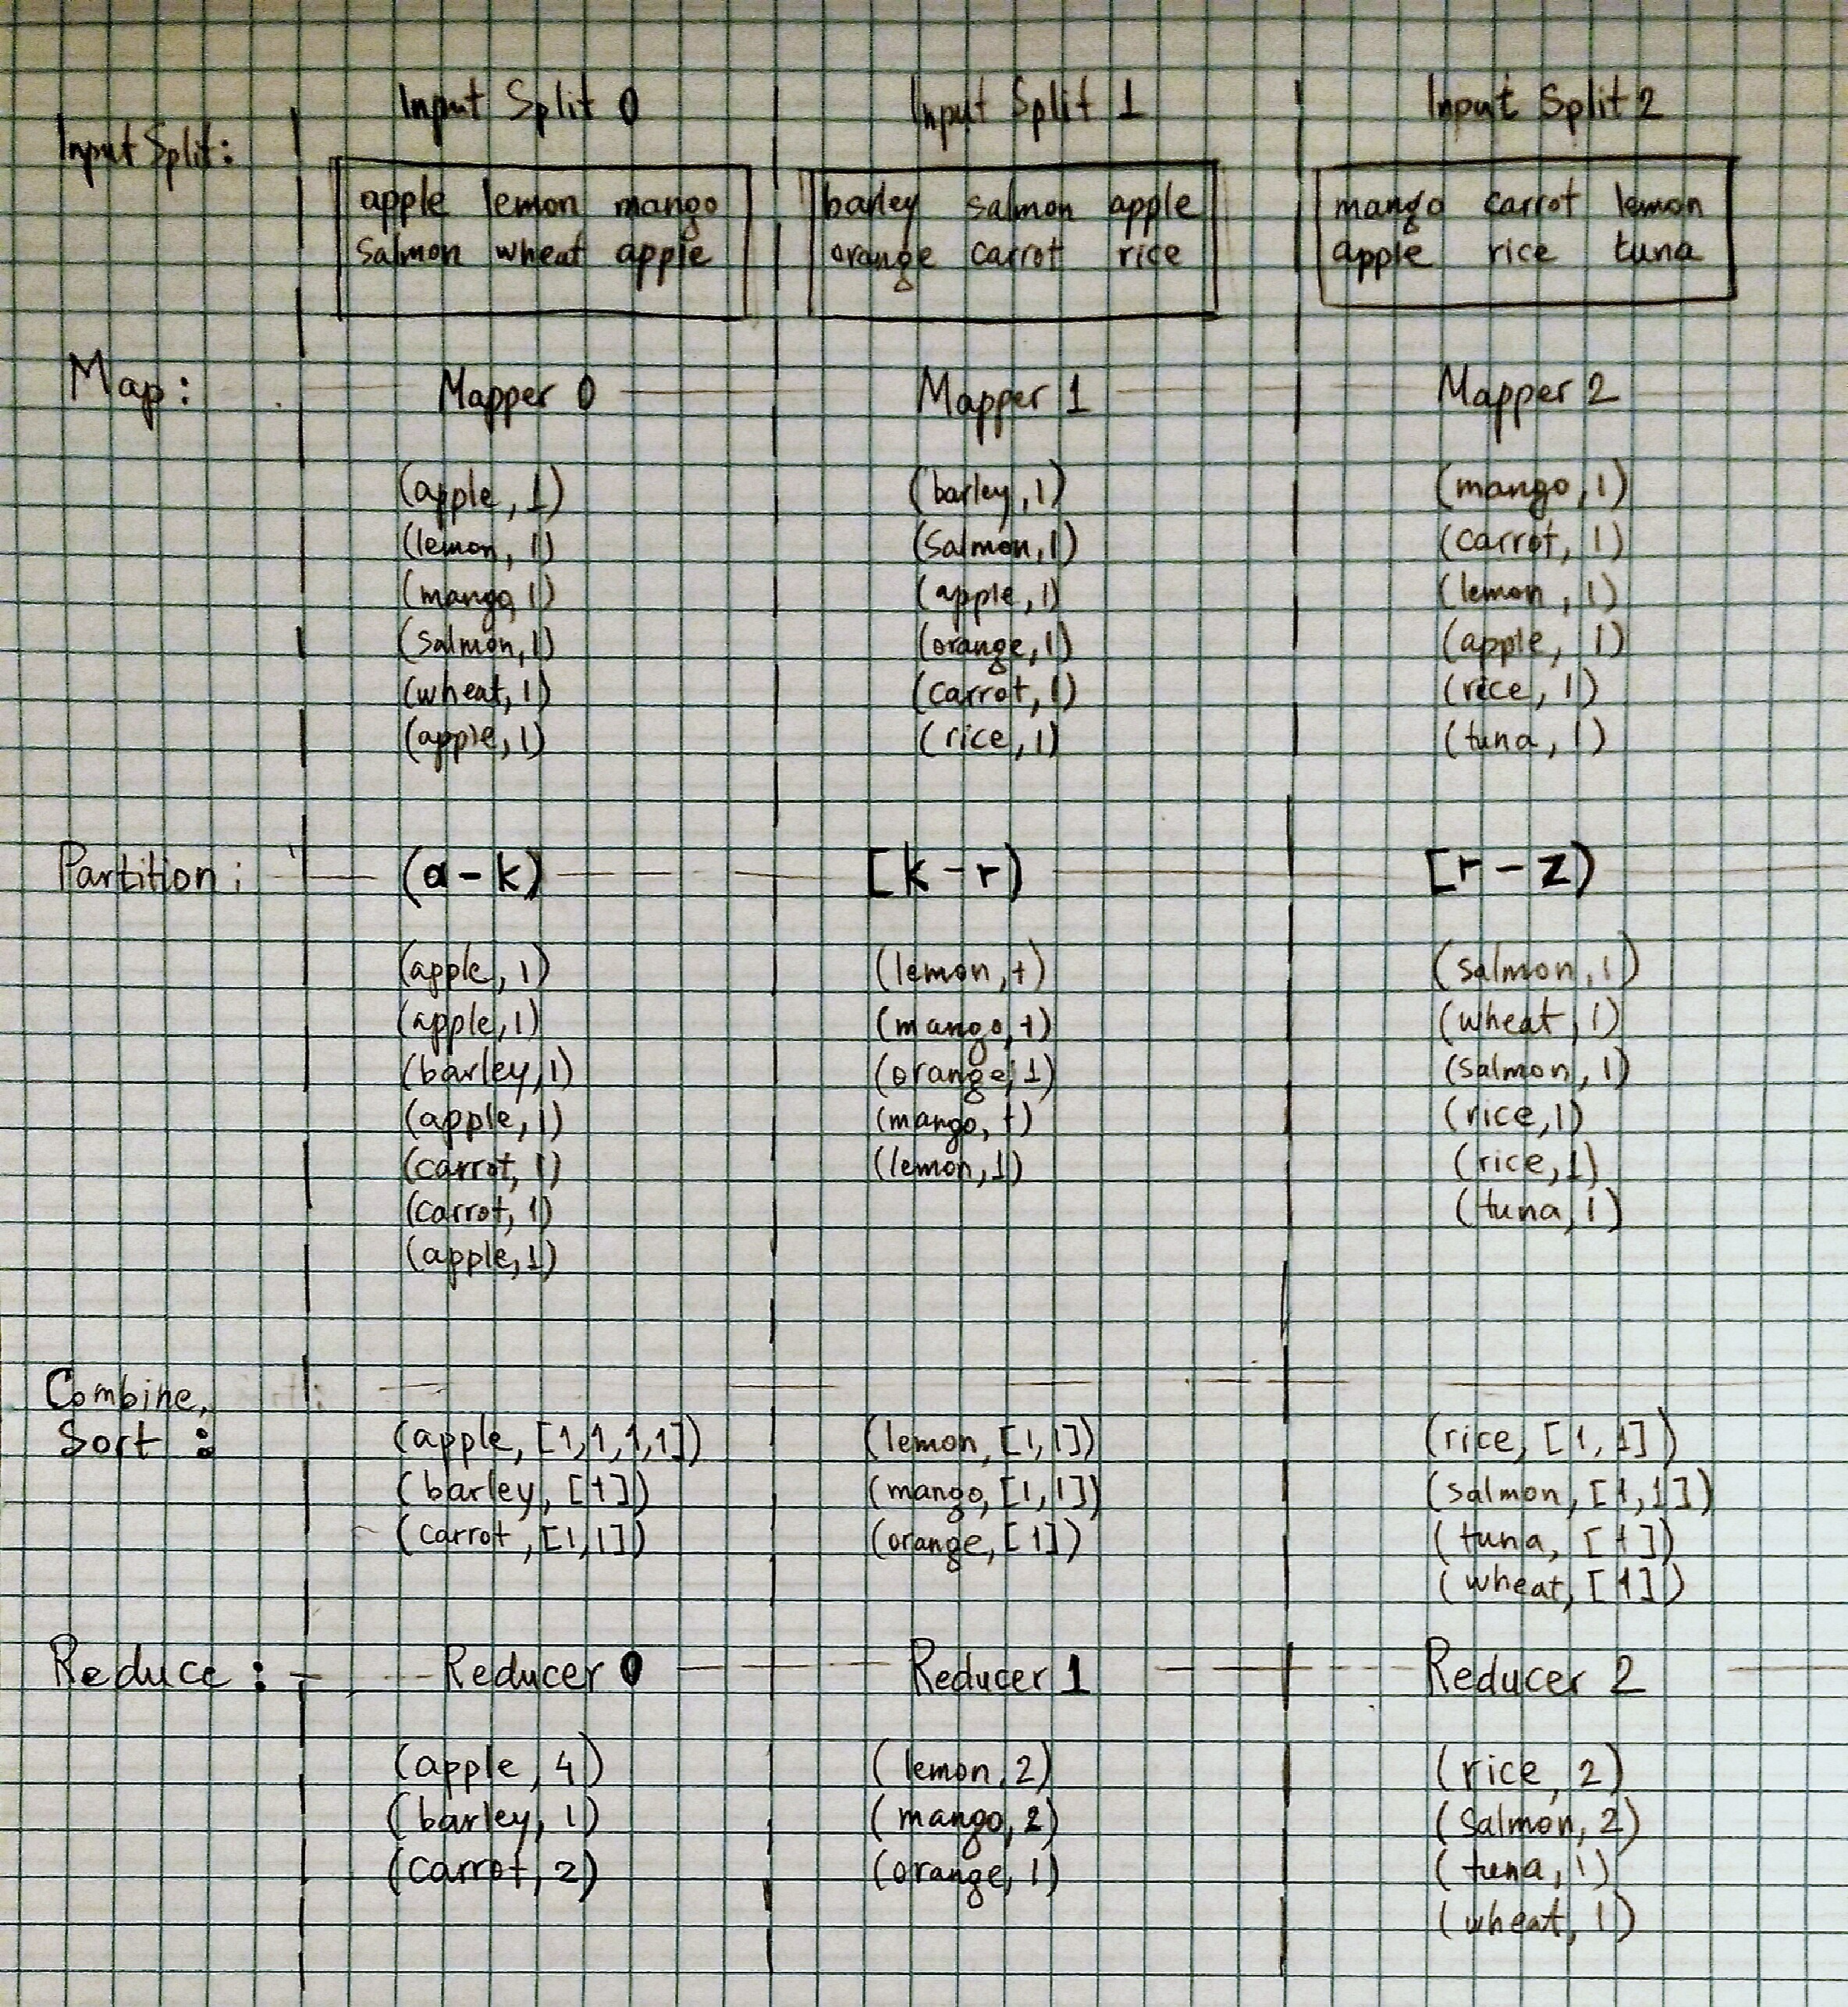 Input Split:
Input Split 0
apple lemon mango
salmon wheat apple
Input Split 1
barley salmon apple
orange carrot rice
Input Split 2
mango carrot lemon
apple rice tuna
Map:
Mapper 0
(apple, 1)
(lemon, 1)
(mango, 1)
(salmon, 1)
(wheat, 1)
(apple, 1)
Mapper 1
(barley, 1)
(salmon, 1)
(apple, 1)
(orange, 1)
(carrot, 1)
(rice, 1)
Mapper 2
(mango, 1)
(carrot, 1)
(lemon, 1)
(apple, 1)
(rice, 1)
(tuna, 1)
Partition:
(a-k)
(apple, 1)
(apple, 1)
(barley, 1)
(apple, 1)
(carrot, 1)
(carrot, 1)
(apple, 1)
[k-r)
(lemon, 1)
(mango, 1)
(orange, 1)
(mango, 1)
(lemon, 1)
[r-z)
(salmon, 1)
(wheat, 1)
(salmon, 1)
(rice, 1)
(rice, 1)
(tuna, 1)
Combine,
Sort :
(apple, [1,1,1,1])
(barley, [1])
(carrot, [1,1])
(lemon, [1,1])
(mango, [1,1])
(orange, [1])
(rice, [1,1])
(salmon, [1,1])
(tuna, [1])
(wheat, [1])
Reduce :
Reducer 0
(apple, 4)
(barley, 1)
(carrot, 2)
Reducer 1
(lemon, 2)
(mango, 2)
(orange, 1)
Reducer 2
(rice, 2)
(salmon, 2)
(tuna, 1)
(wheat, 1)